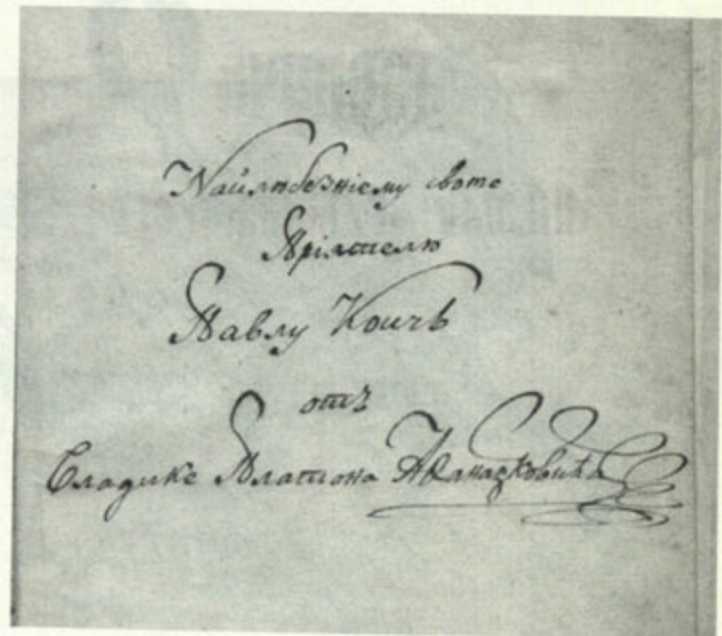 Найлюбезніему своме
Пріятелю
Павлу Коичь
отъ
Владике Платона Аѳанацковића